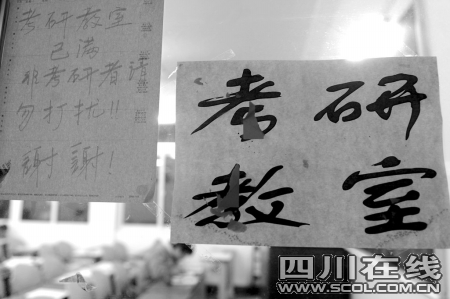 考研教室
已满
非考研者请
勿打扰!!
謝謝!
考研
教室
四川在线
WWW.SCOL.COM.CN